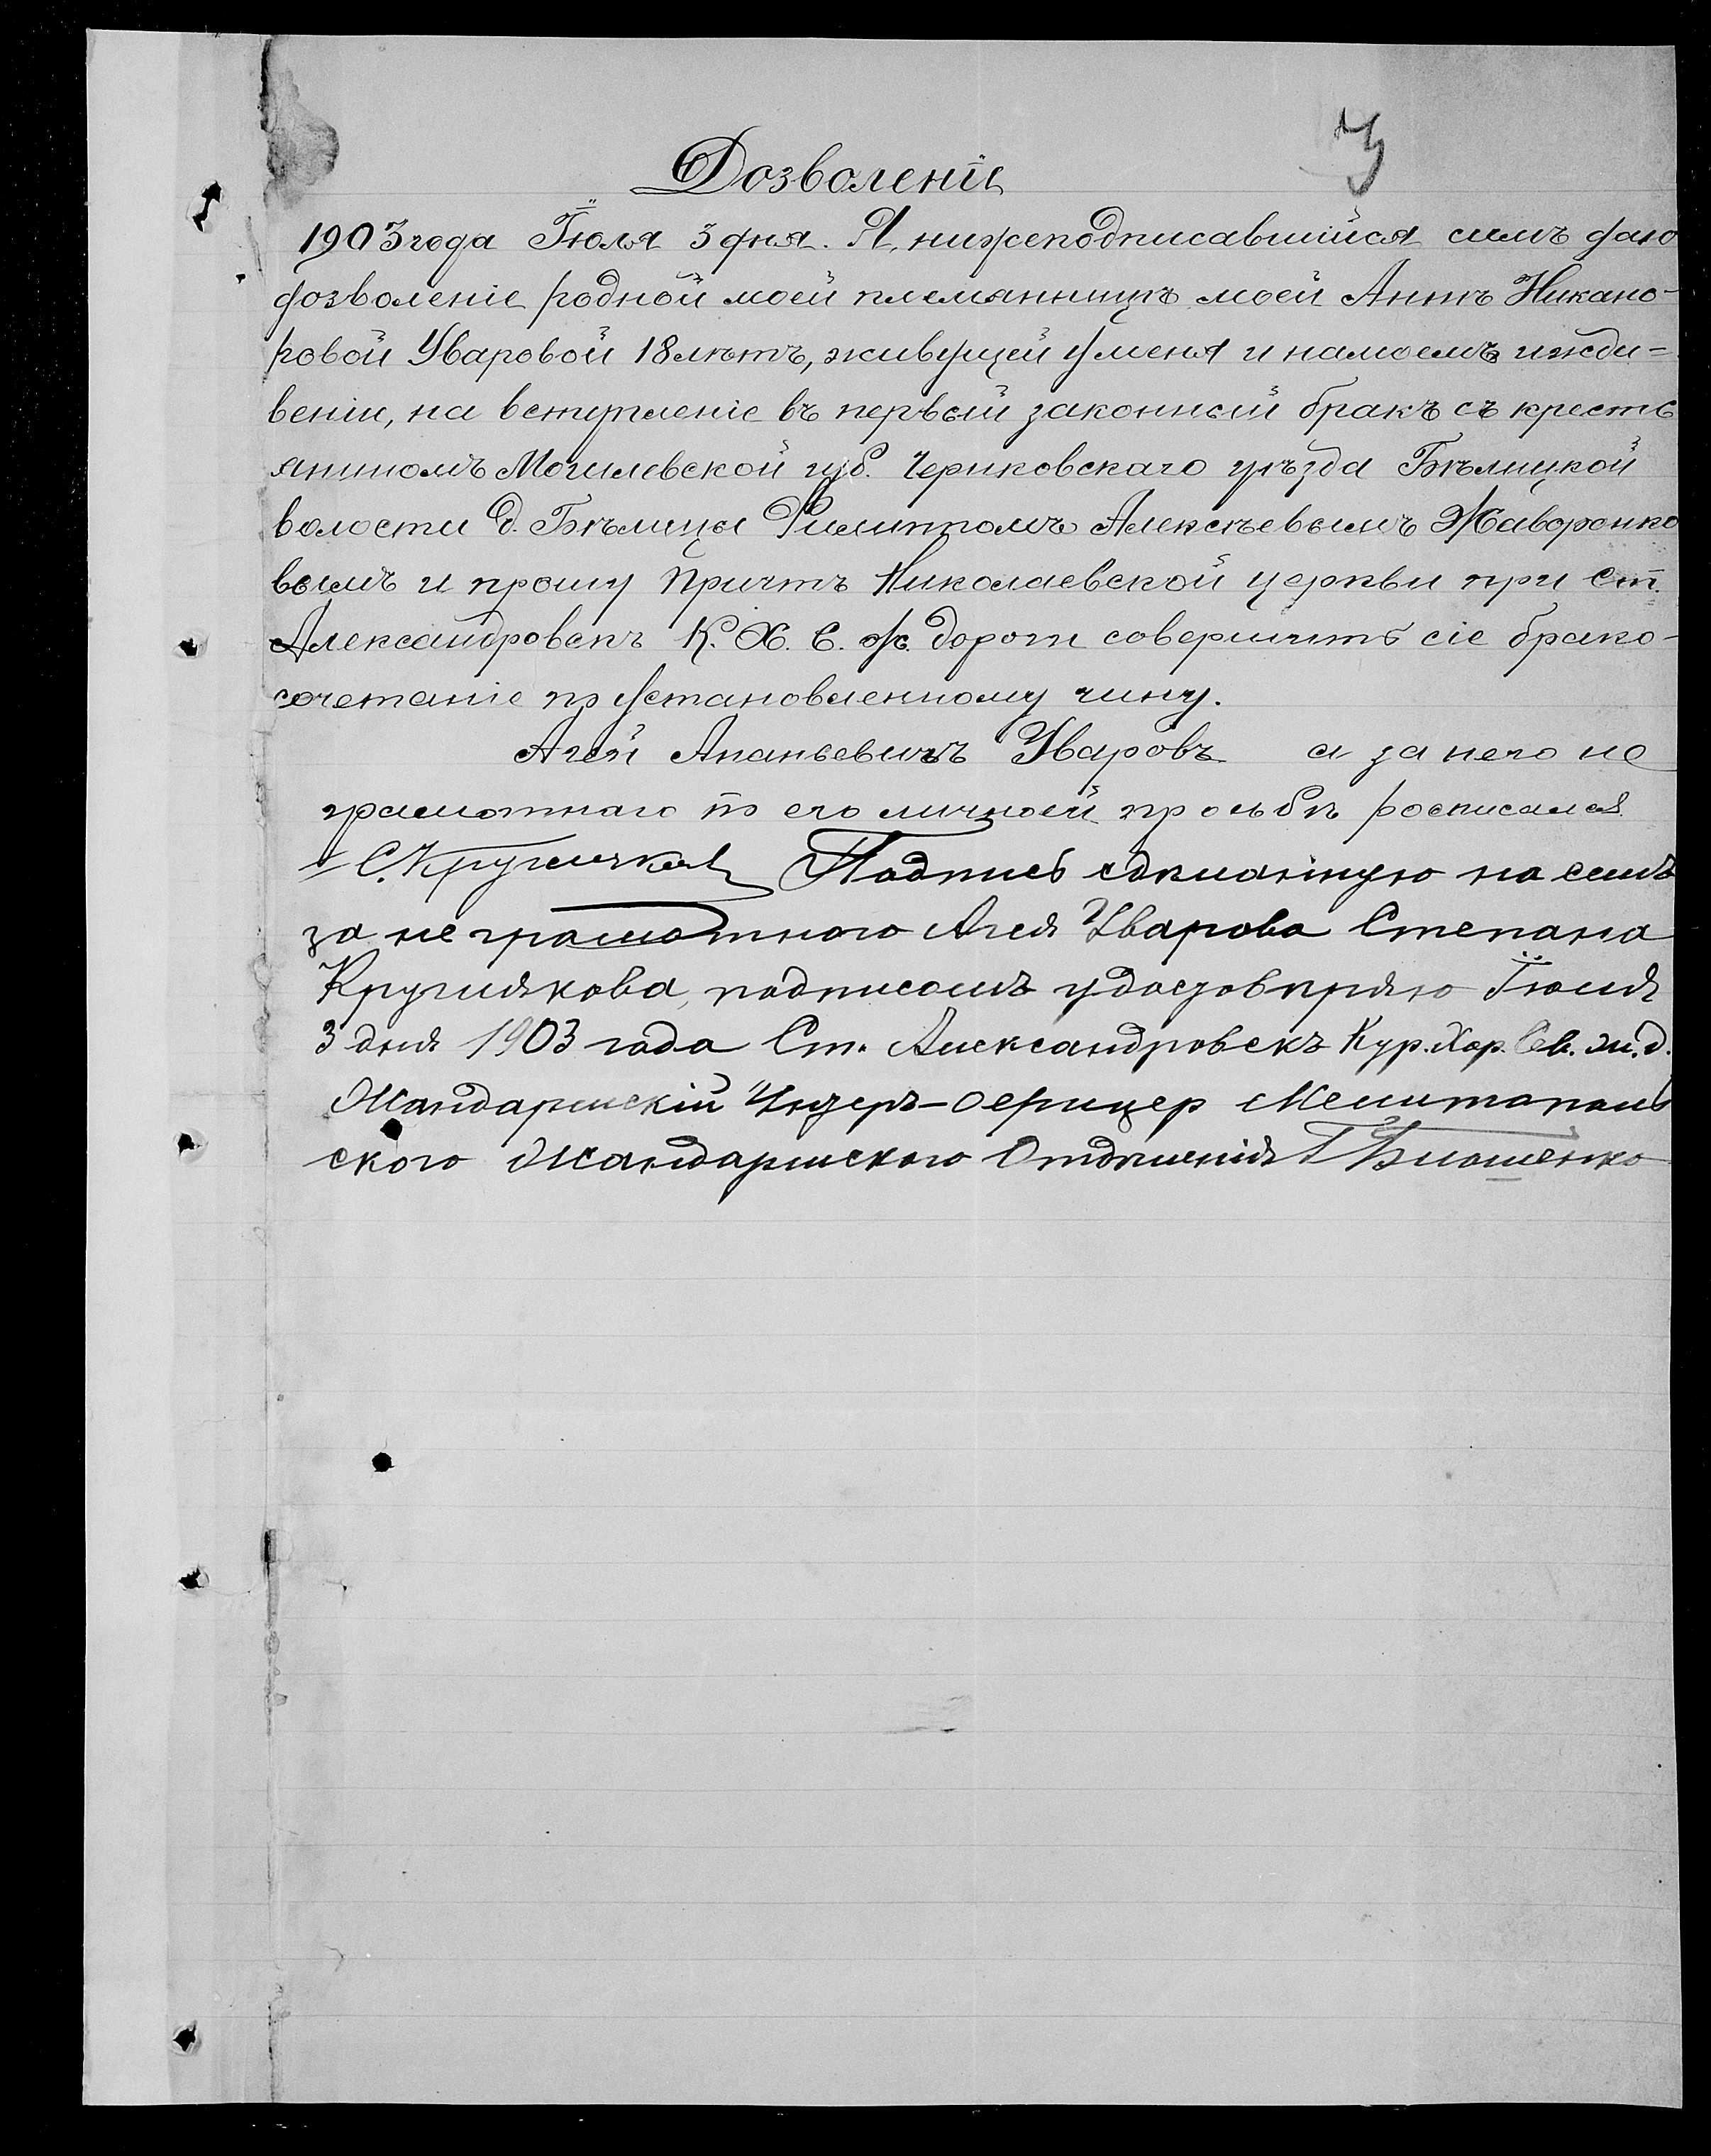 3
Дозволеніе
1903 года Іюля 3 дня. Я, нижеподписавшийся симъ даю
дозволеніе родной моей племянницѣ моей Аннѣ Никано-
ровой Уваровой 18 лѣтъ, живущей у меня и на моемъ ижди-
веніи, на вступленіе въ первый законный бракъ съ кресть
яниномъ Могилевской губ. Чериковскаго уѣзда Бѣлицкой
волости д. Бѣлицы Филиппомъ Алексѣевымъ Жаворонко
вымъ и прошу Причтъ Николаевской церкви при ст.
Александровскъ К. Х. С. ж. дороги совершить сіе брако-
сочетаніе по установленному чину.
Агей Ананьевичъ Уваровъ а за него не
грамотнаго по его личной прозьбѣ росписался
С. Кругляковъ Подпись сдѣланную на семъ
за не грамотного Агея Уварова Степана
Круглякова, подписомъ удостовѣряю Іюля
3 дня 1903 года Ст. Александровскъ Кур. Хар. Сев. ж. д.
Жандармскій Унтеръ-Оерицер Мелитополь
ского Жандармского Отдѣленія